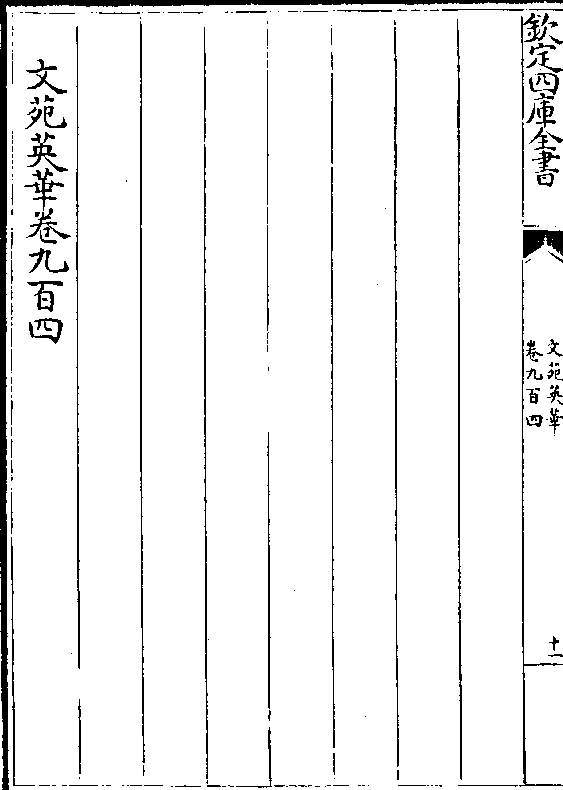 欽定四庫全書
文苑英華
卷九百四
十一
文苑英華卷九百四